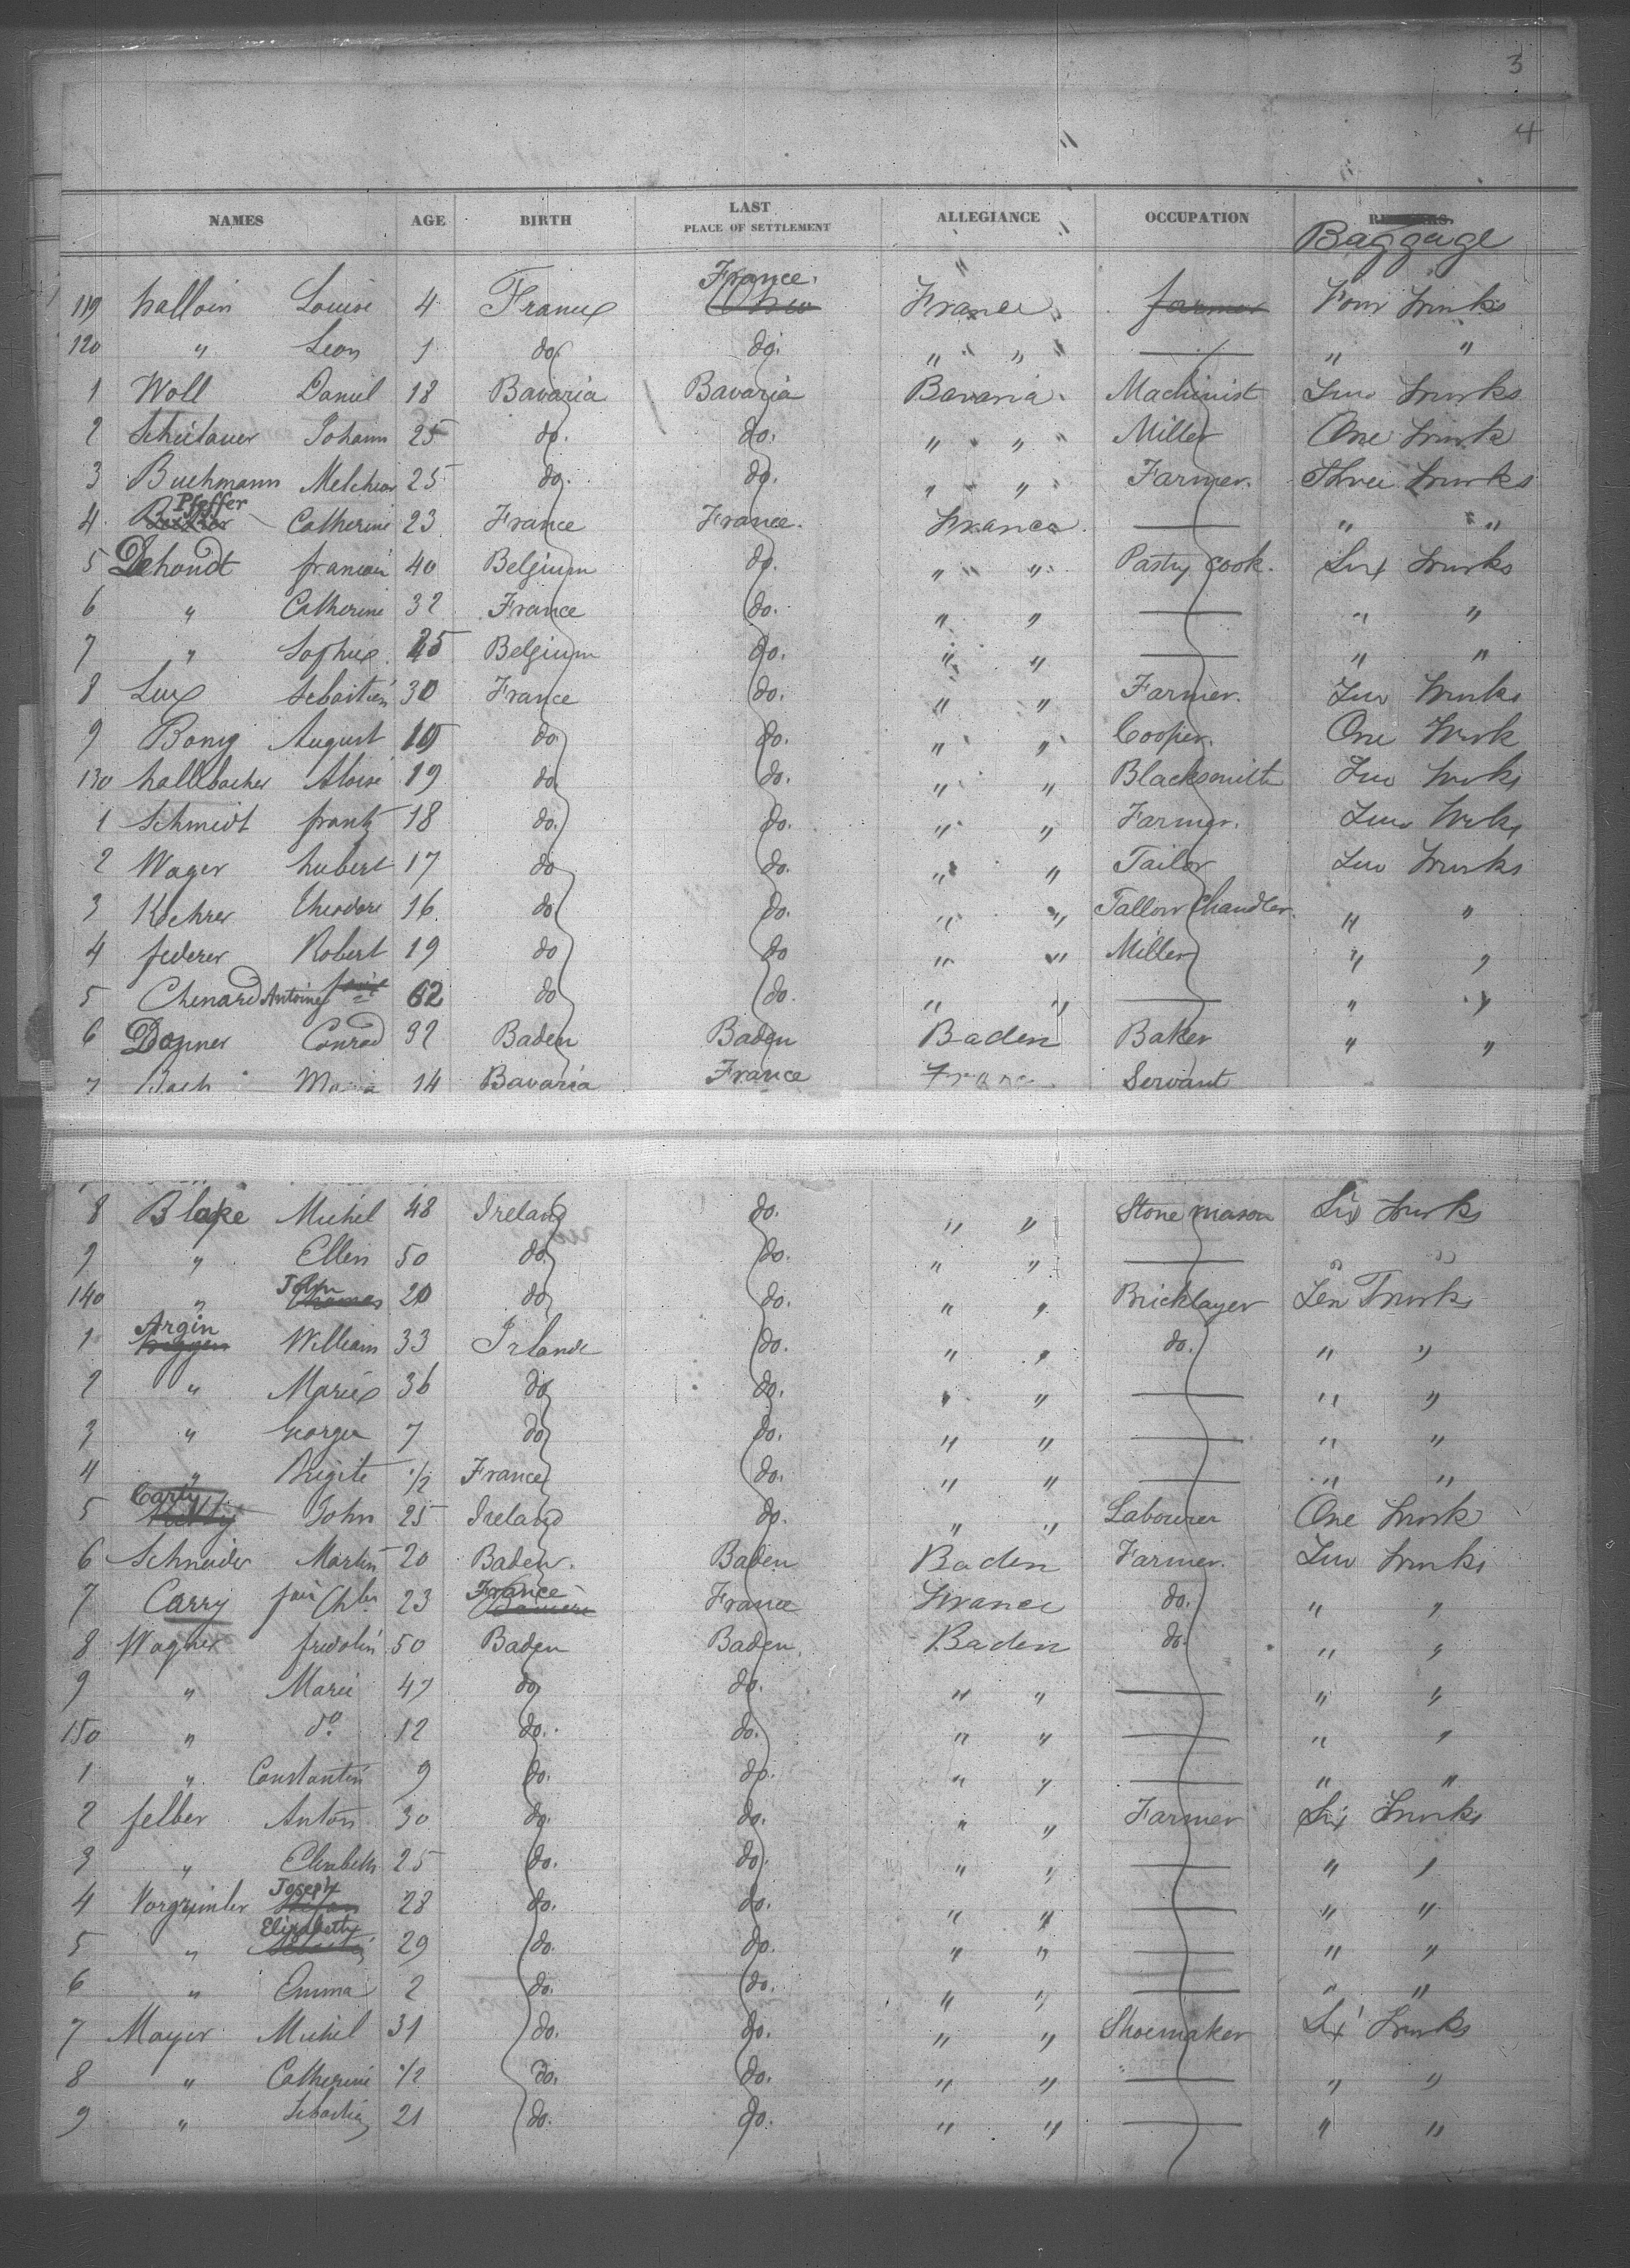 3
4
NAMES AGE BIRTH LAST PLACE OF SETTLEMENT ALLEGIANCE OCCUPATION Baggage
119 Louise 4 France France. France farmer Four trunks
120 " Leon 1 do. do. " " — " "
1 Woll Daniel 18 Bavaria Bavaria Bavaria Machinist Two trunks
2 Johann 25 do. do. " " Miller One trunk
3 Buchmann Melchior 25 do. do. " " Farmer. Three trunks
4 Pfeffer Catherine 23 France France. France — " "
5 Dehondt 40 Belgium do. " " Pastry cook. Six trunks
6 " Catherine 32 France do. " " — " "
7 " Sophie 25 Belgium do. " " — " "
8 Lux Sebastien 30 France do. " " Farmer. Two trunks
9 Bony August do. do. " " Cooper. One trunk
130 Aloise 19 do. do. " " Blacksmith Two trunks
1 Schmidt frantz 18 do. do. " " Farmer. Two trunks
2 Wager hubert 17 do do. " " Tailor Two trunks
3 Theodore 16 do do. " " Tallow Chandler. " "
4 federer Robert 19 do do " " Miller " "
5 Chenard Antoine 62 do do. " " — " "
6 Donner Conrad 32 Baden Baden Baden Baker " "
7 Maria 14 Bavaria France France Servant
8 Blake Michel 48 Ireland do. " " Stone mason Six trunks
9 " Ellen 50 do. do. " " — " "
140 " John 20 do do. " " Bricklayer Ten Trunks
1 Argin William 33 Irlande do. " " do. " "
2 " Marie 36 do do. " " — " "
3 " Georges 7 do do. " " — " "
4 " Brigite 1/2 France do. " " — " "
5 Carty John 25 Ireland do. " " Labourer One trunk
6 Schneider Martin 20 Baden. Baden Baden Farmer. Two trunks
7 Carry Chles 23 France France France do. " "
8 Wagner fridolin 50 Baden Baden. Baden do. " "
9 " Marie 47 do. do. " " — " "
150 " do 12 do. do. " " — " "
1 " Constantin 9 do. do. " " — " "
2 felber Anton 30 do. do. " " Farmer Six trunks
3 " Elisabeth 25 do. do. " " — " "
4 Vorgrimler Joseph 28 do. do. " " — " "
5 " Elizabeth 29 do. do. " " — " "
6 " Emma 2 do. do. " " — " "
7 Mayer Michel 31 do. do. " " Shoemaker Six trunks
8 " Catherine 1/2 do. do. " " — " "
9 " 21 do. do. " " — " "